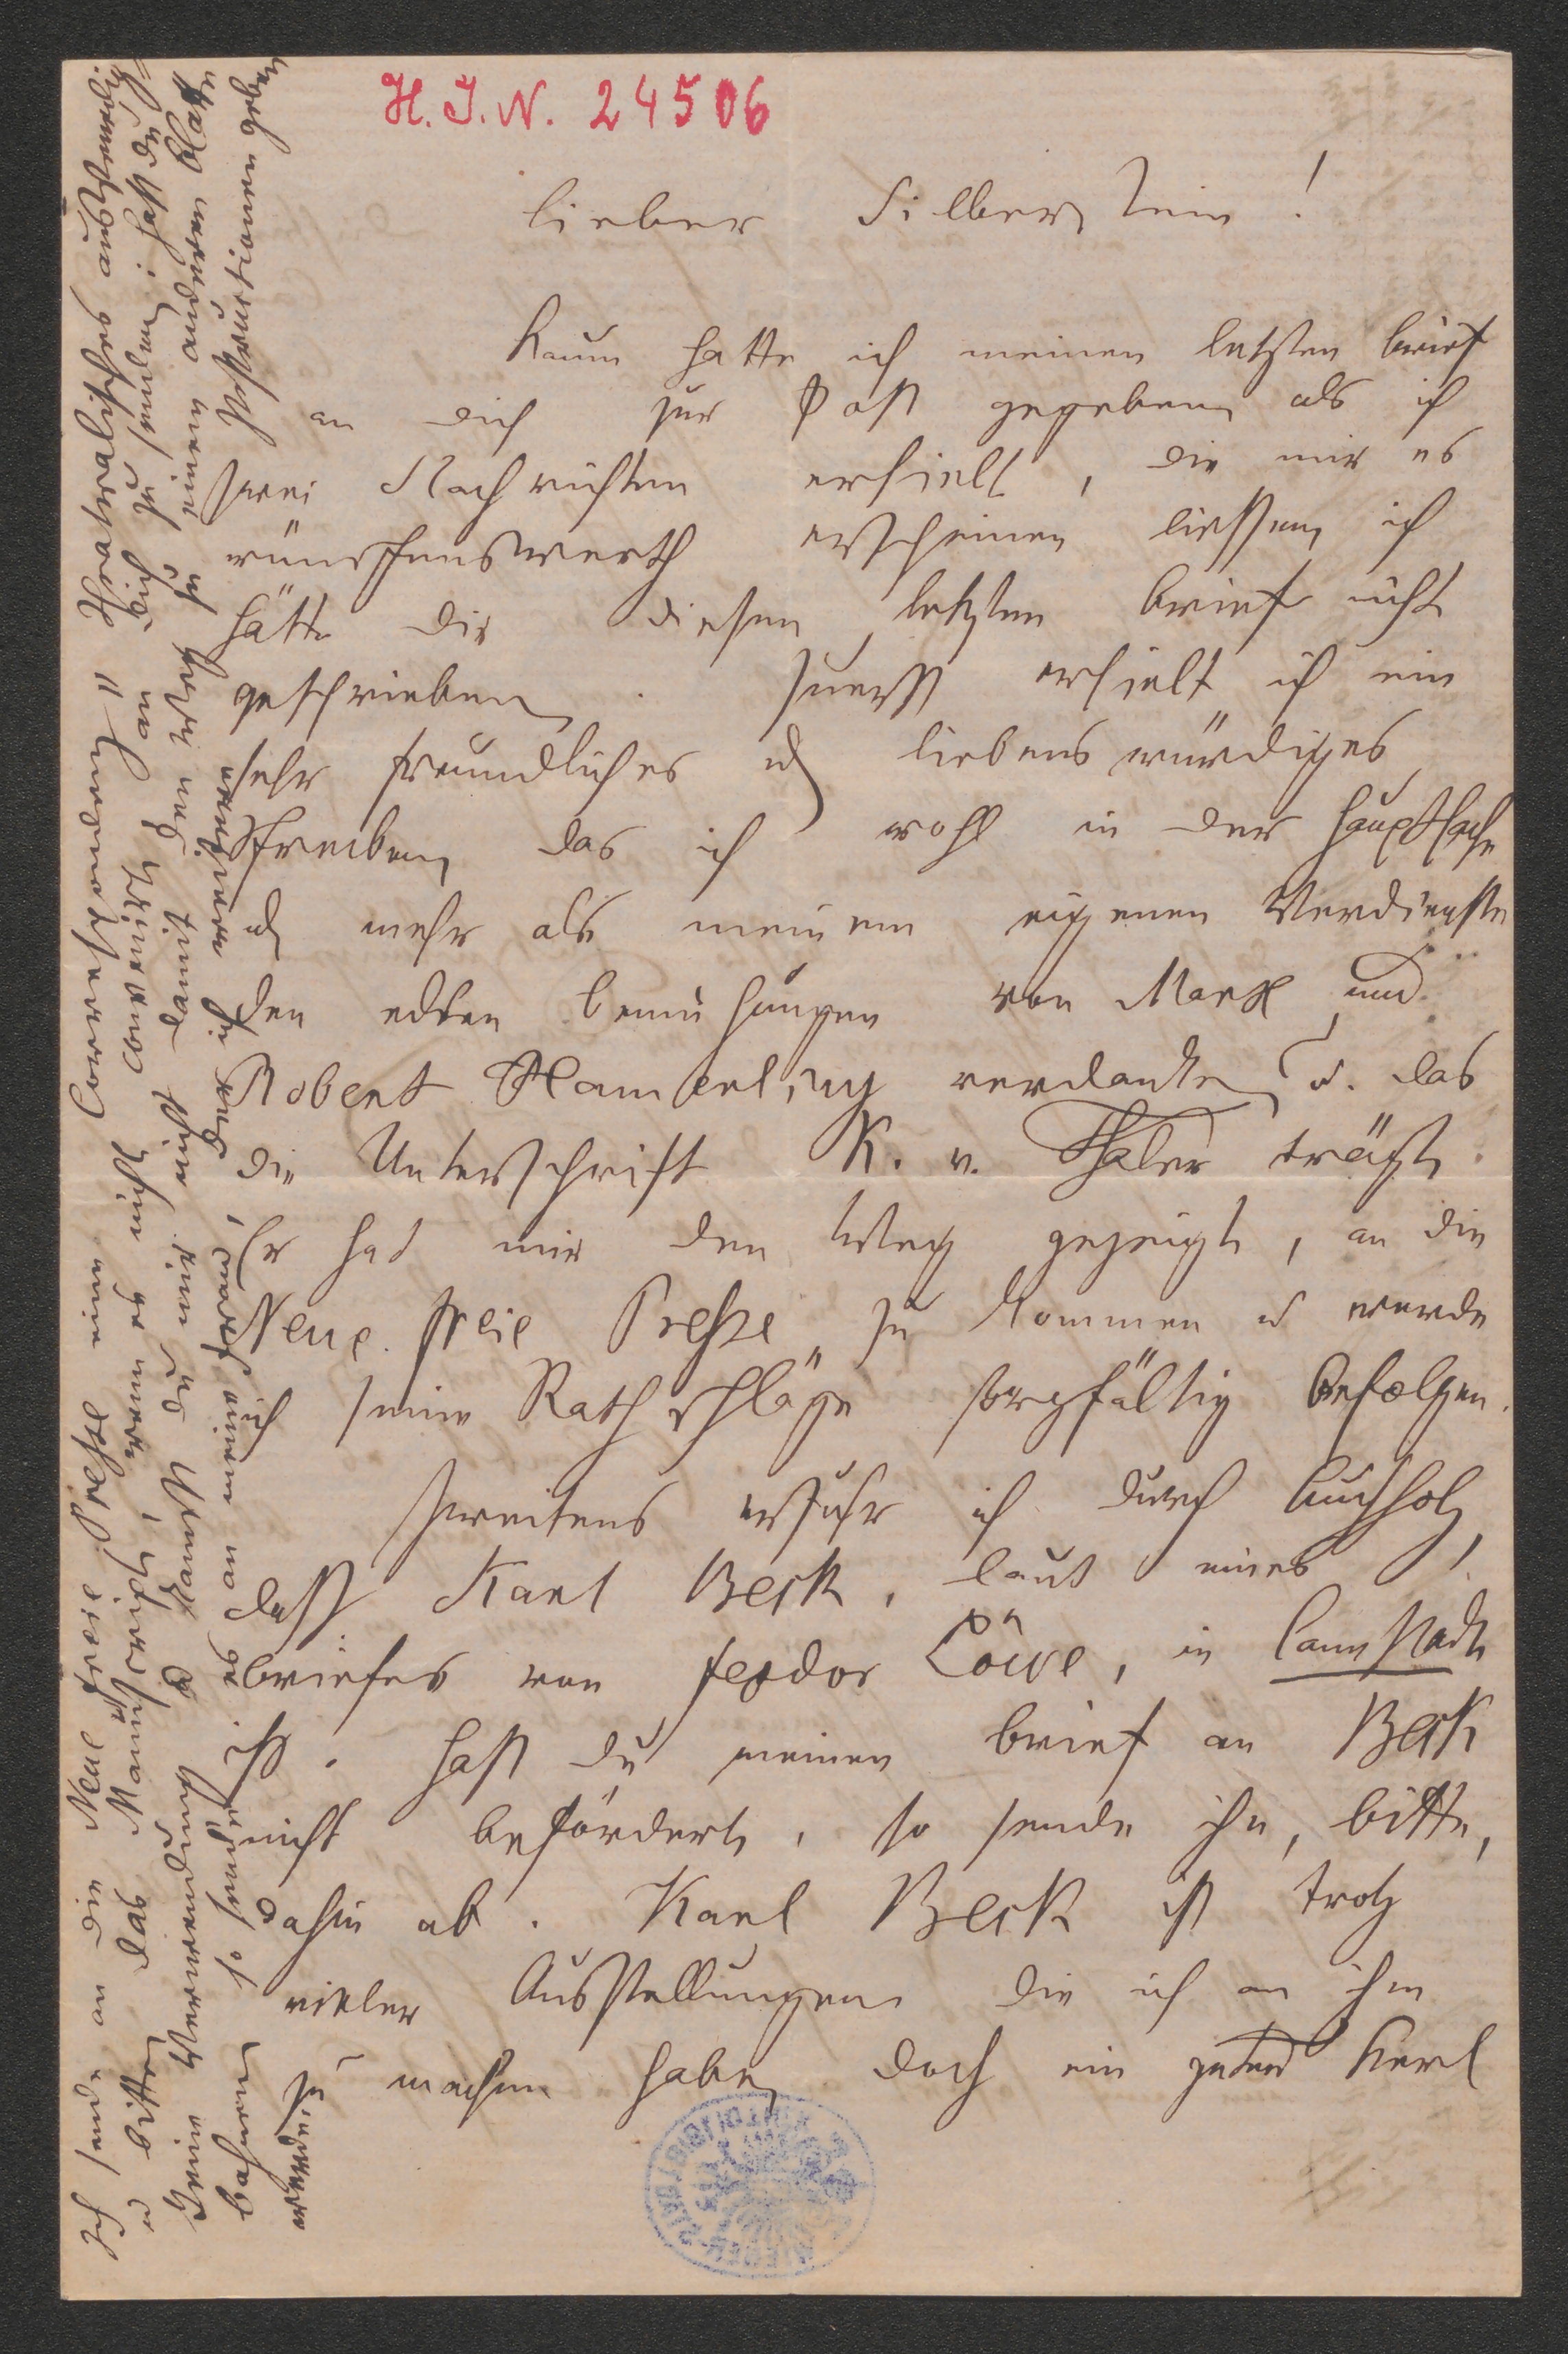 H. I. N. 24506
Lieber Silberstein!
Kaum hatte ich meinen letzten Brief
an dich zur Post gegeben als ich
zwei Nachrichten erhielt, die mir es
wünschenswerth erscheinen liessen, ich
hätte dir diesen letzten Brief nicht
geschrieben. Zuerst erhielt ich ein
sehr freundliches u liebenswürdiges
Schreiben, das ich wohl in der Hauptsache
u mehr als meinem eigenen Verdienste
den edlen Bemühungen von Marx und
Robert Hamerling verdanke, u. das
die Unterschrift K. v. Thaler trägt.
Er hat mir den Weg gezeigt, an die
Neue freie Presse zu kommen u werde
ich seine Rathschläge sorgfältig befolgen.
Zweitens erfuhr ich durch Buchholz,
dass Karl Beck, laut eines
Briefes von Feodor Löwe, in Cannstadt
ist. Hast du meinen Brief an Beck
nicht befördert, so sende ihn, bitte,
dahin ab. Karl Beck ist trotz
vieler Ausstellungen die ich an ihm
zu machen habe, doch ein guter Kerl
Ich sende an die Neue freie Presse eine Correspondenz "Theatralisches aus Venedig"
u bitte, das Manuscript, wenn es nicht convenirt, an dich zu senden; hast du
deine Verwendung u kannst du mir nicht damit den Weg zu einem anderen Blatte
bahnen so sende es an meine Frau, der ich weitere Instructionen geben
werde.